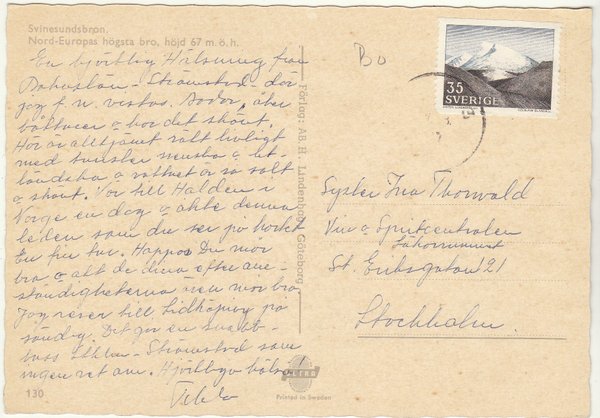 Svinesundsbron.
Nord-Europas högsta bro, höjd 67 m.ö.h.
En hjärtlig hälsning från
Bohuslän - Strömstad - där
jag f.n. vistas. Badar, åker
båtturer & har det skönt.
Här är alltjämt rätt livligt
med turister svenska & ut-
ländska & vattnet är så salt
& skönt. Var till Halden i
Norge en dag & åkte denna
leden som du ser på kortet
En fin tur. Hoppas Du mår
bra & att de dina efter om-
ständigheterna även mår bra
Jag reser till Lidköping på
söndag. Det går en snabb-
buss - Strömstad som
ingen vet om. Hjärtliga häls
130
Förlag: AB H. Lindenhag, Göteborg
ULTRA
Printed in Sweden
Bo
35
SVERIGE
Syster Ina Thorvald
Vin & Spritcentralen
St. Eriksgatan 121
Stockholm.